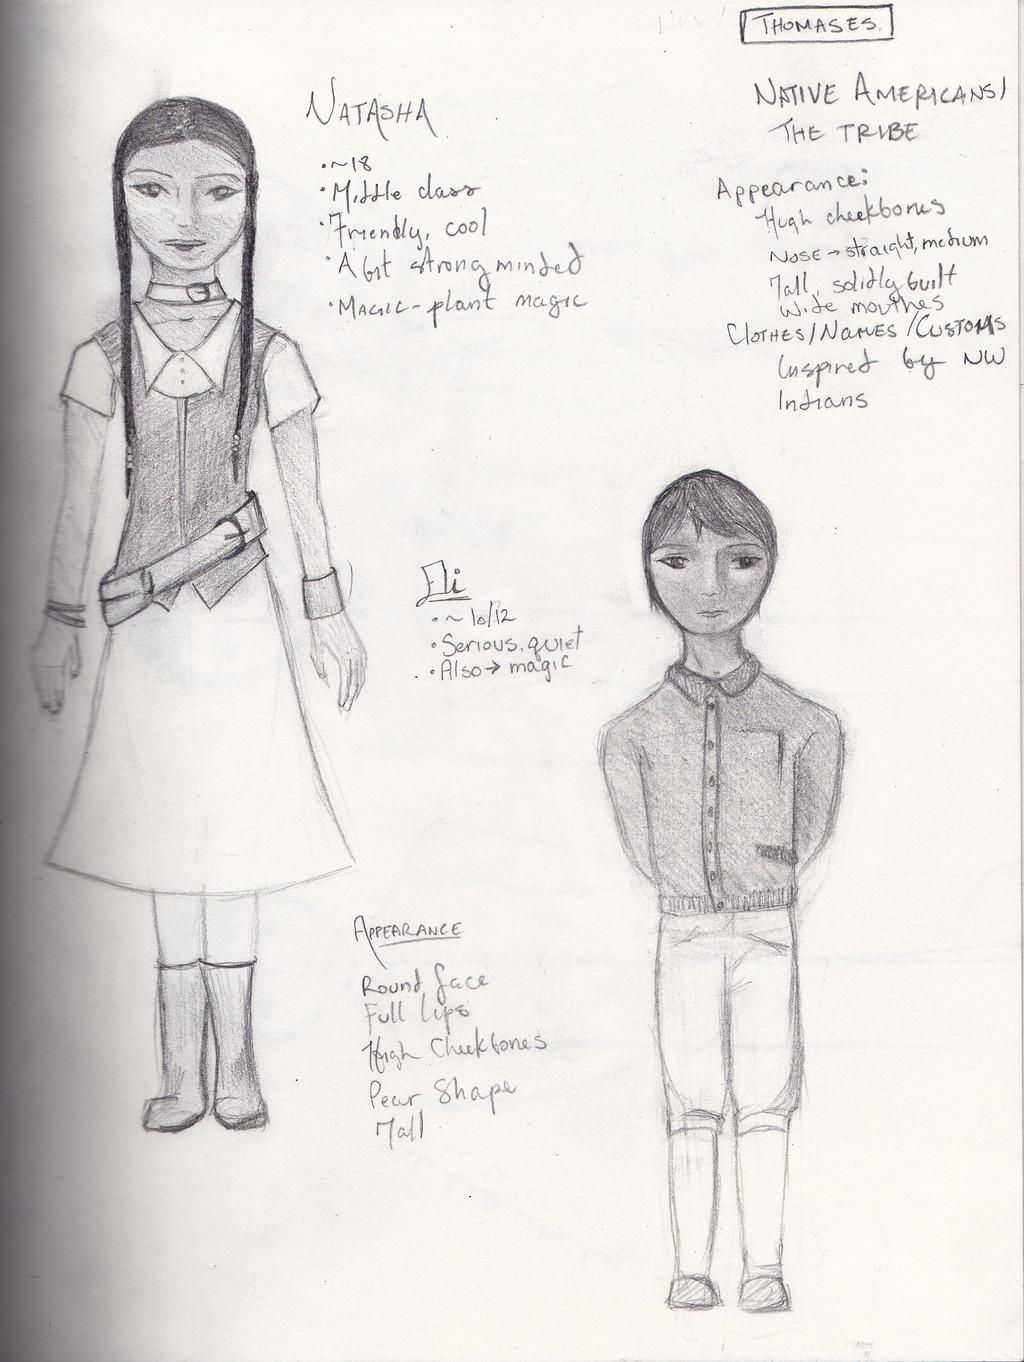 THOMASES.
NATASHA
• ~18
• Middle class
• Friendly, cool
• A bit strong minded
• MAGIC - plant magic
NATIVE AMERICANS/
THE TRIBE
Appearance:
High cheekbones
NOSE → straight, medium
Tall, solidly built
Wide mouthes
CLOTHES/NAMES/CUSTOMS
Inspired by NW
Indians
Eli
• ~ 10/12
• Serious, quiet
• Also → magic
APPEARANCE
Round face
Full Lips
High Cheekbones
Pear Shape
Tall